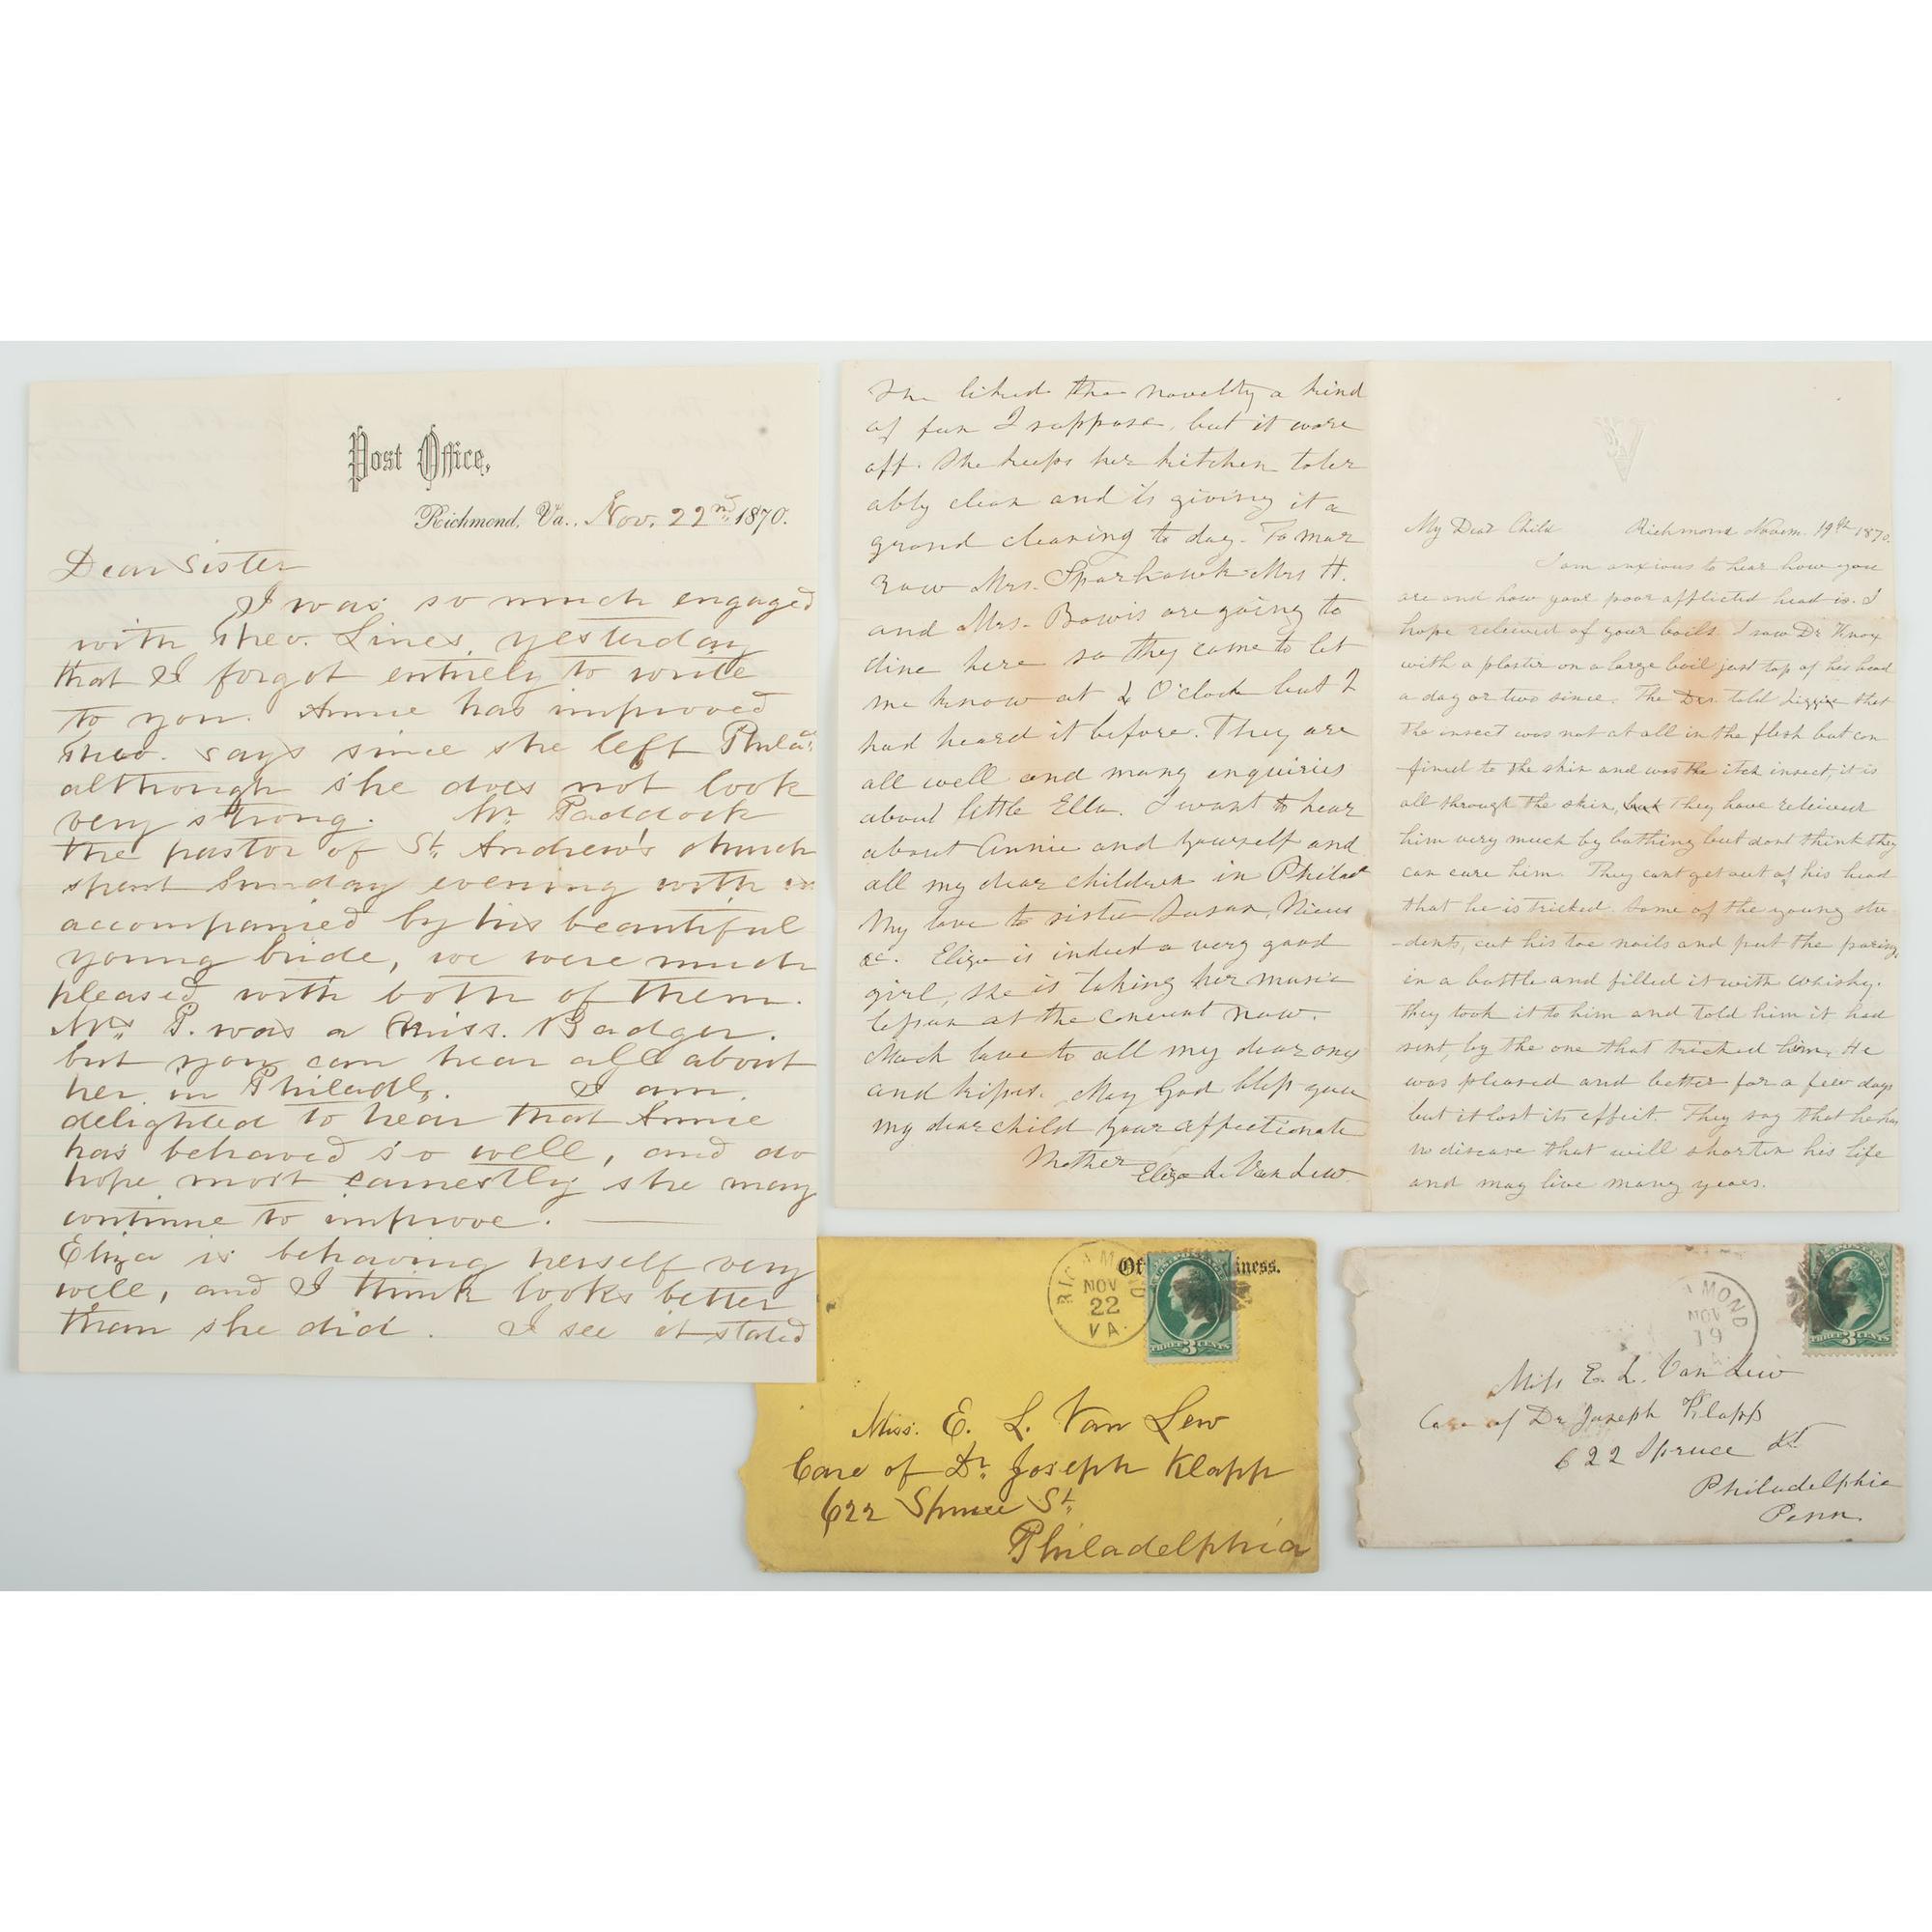 Post Office,
Richmond, Va., Nov. 22nd 1870.
Dear Sister
I was so much engaged
with Theo. Lines, yesterday
that I forgot entirely to write
to you. Annie has improved
Theo. says since she left Phila:
although she does not look
very strong. Mr. Paddock
the pastor of St. Andrew's church
spent Sunday evening with us
accompanied by his beautiful
young bride, we were much
pleased with both of them.
Mrs P. was a Miss. Badger.
but you can hear all about
her in Philadl. I am
delighted to hear that Annie
has behaved so well, and do
hope most earnestly she may
continue to improve.
Eliza is behaving herself very
well, and I think looks better
than she did. I see it stated
She liked the novelty a kind
of fun I suppose, but it wore
off. She keeps her kitchen toler
ably clean and is giving it a
grand cleaning to day. To mor
row Mrs. Sparhawk Mrs H.
and Mrs. Bowis are going to
dine here so they came to let
me know at 2 O'clock but I
had heard it before. They are
all well and many enquiries
about little Ella. I want to hear
about Annie and yourself and
all my dear children in Philad
My love to sister Susan, Nieces
&c. Eliza is indeed a very good
girl, she is taking her music
lesson at the convent now.
Much love to all my dear ones
and kisses. May God bless you
my dear child your affectionate
Mother Eliza L. Van Lew
My Dear Child Richmond Novem. 19th 1870.
I am anxious to hear how you
are and how your poor afflicted head is. I
hope relieved of your boils. I saw Dr Knox
with a plaster on a large boil just top of his head
a day or two since. The Drs told Lizzie that
the insect was not at all in the flesh but con
fined to the skin and was the itch insect, it is
all through the skin, but they have relieved
him very much by bathing but dont think they
can cure him. They cant get out of his head
that he is tricked. Some of the young stu
-dents, cut his toe nails and put the parings
in a bottle and filled it with whisky.
they took it to him and told him it had
sent, by the one that tricked him. He
was pleased and better for a few days
but it lost its effect. They say that he has
no disease that will shorten his life
and may live many years.
Of iness.
RICHMOND
NOV
22
VA.
THREE 3 CENTS
Miss. E. L. Van Lew
Care of Dr. Joseph Klapp
622 Spruce St.
Philadelphia
MOND
NOV
19
POSTAGE
THREE 3 CENTS
Miss E. L. Van Lew
Care of Dr Joseph Klapp
622 Spruce St
Philadelphia
Penn.